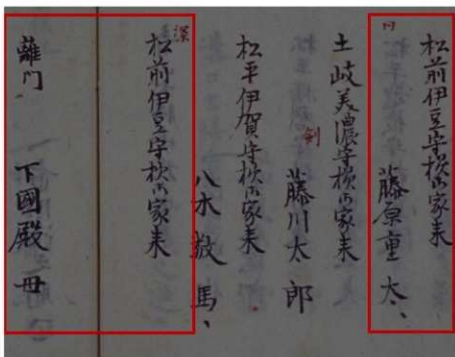 松前伊豆守様御家来
同
藤原重太
土岐美濃守様御家来
剣
藤川太郎
松平伊賀守様御家来
八木数馬
漢
松前伊豆守様御家来
離門
下國殿母